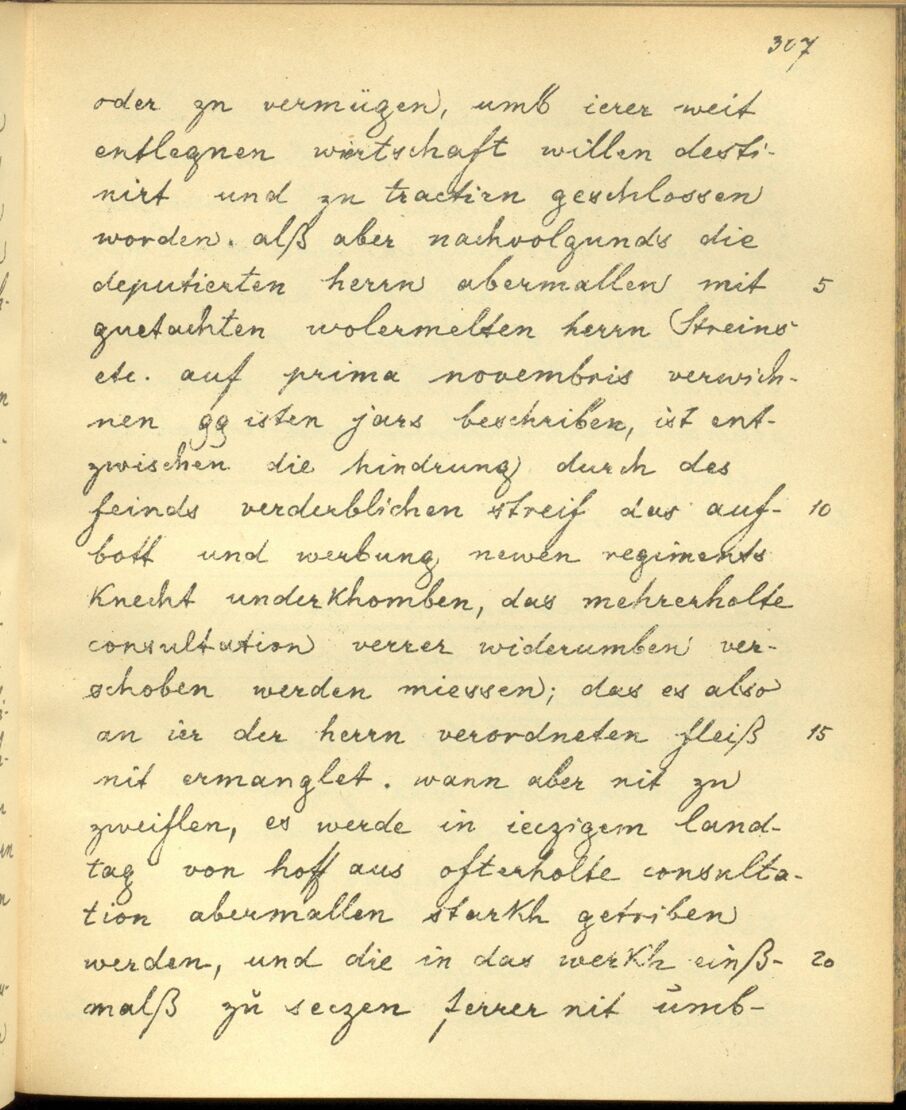 307
oder zu vermügen, umb ierer weit
entlegnen wirtschaft willen desti-
nirt und zu tractirn geschlossen
worden. alß aber nachvolgunds die
deputierten herrn abermallen mit 5
guetachten wolermelten herrn Streins
etc. auf prima novembris verwich-
nen 99 isten jars beschriben, ist ent-
zwischen die hindrung durch des
feinds verderblichen streif das auf- 10
bott und werbung newen regiments
knecht underkhomben, das mehrerholte
consultation verrer widerumben ver-
schoben werden miessen; das es also
an ier der herrn verordneten fleiß 15
nit ermanglet. wann aber nit zu
zweiflen, es werde in ieczigem land-
tag von hoff aus ofterholte consulta-
tion abermallen starkh getriben
werden, und die in das werkh einß- 20
malß zu seczen ferrer nit umb-